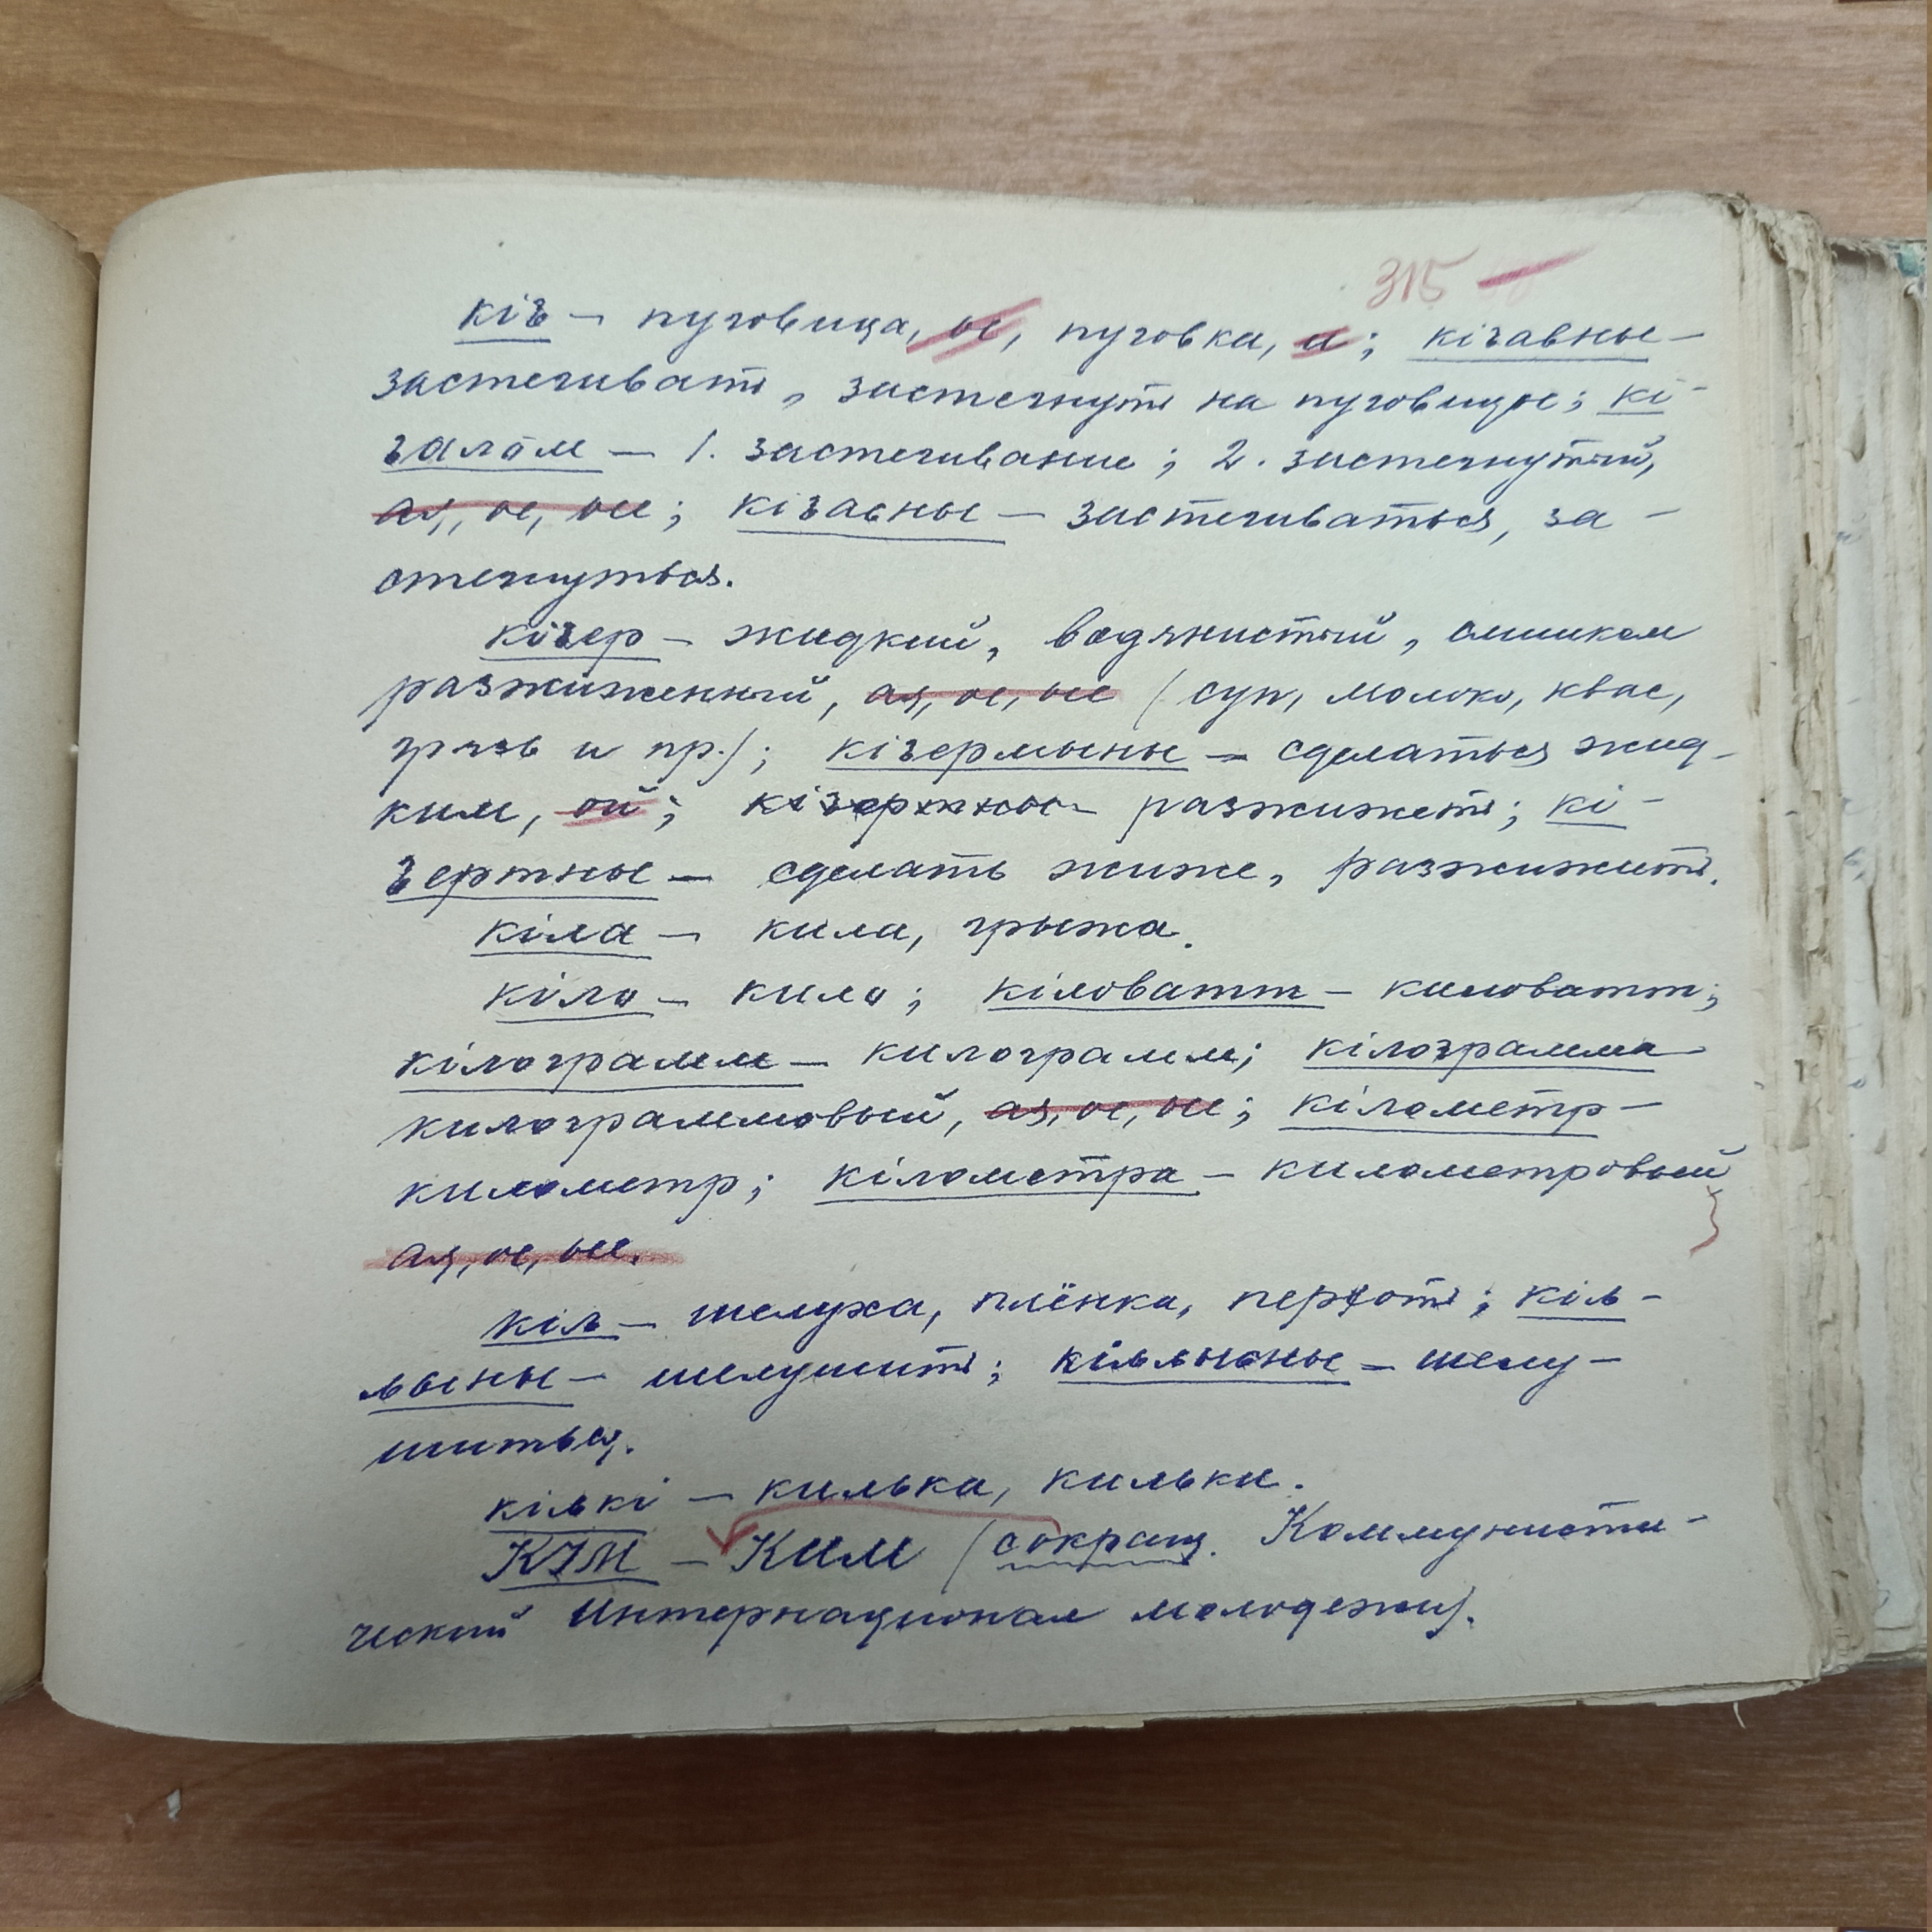 315
кіз – пуговица, ~~ые~~, пуговка, ~~и~~; кізавны –
застегивать, застегнуть на пуговицы; кі-
залӧм – 1. застегивание; 2. застегнутый,
~~ая, ое, ые~~; кізасьны – застегиваться, за-
стегнуться.
кізер – жидкий, водянистый, слишком
разжиженный, ~~ая, ое, ые~~ (суп, молоко, квас,
грязь и пр.); кізермыны – сделаться жид-
ким, ~~ой~~; кізертны – разжижеть; кі-
зертны – сделать жиже, разжижить.
кіла – кила, грыжа.
кіло – кило; кіловатт – киловатт;
кілограмм – килограмм; кілограмма
килограммовый, ~~ая, ое, ые~~; кілометр –
километр; кілометра – километровый
~~ая, ое, ые.~~
кіль – шелуха, плёнка, перхоть; кіль-
льыны – шелушить; кільльыны – шелу-
шиться.
кількі – килька, кильки.
КІМ – Ким (сокращ. Коммунисти-
ческий Интернационал молодежи).